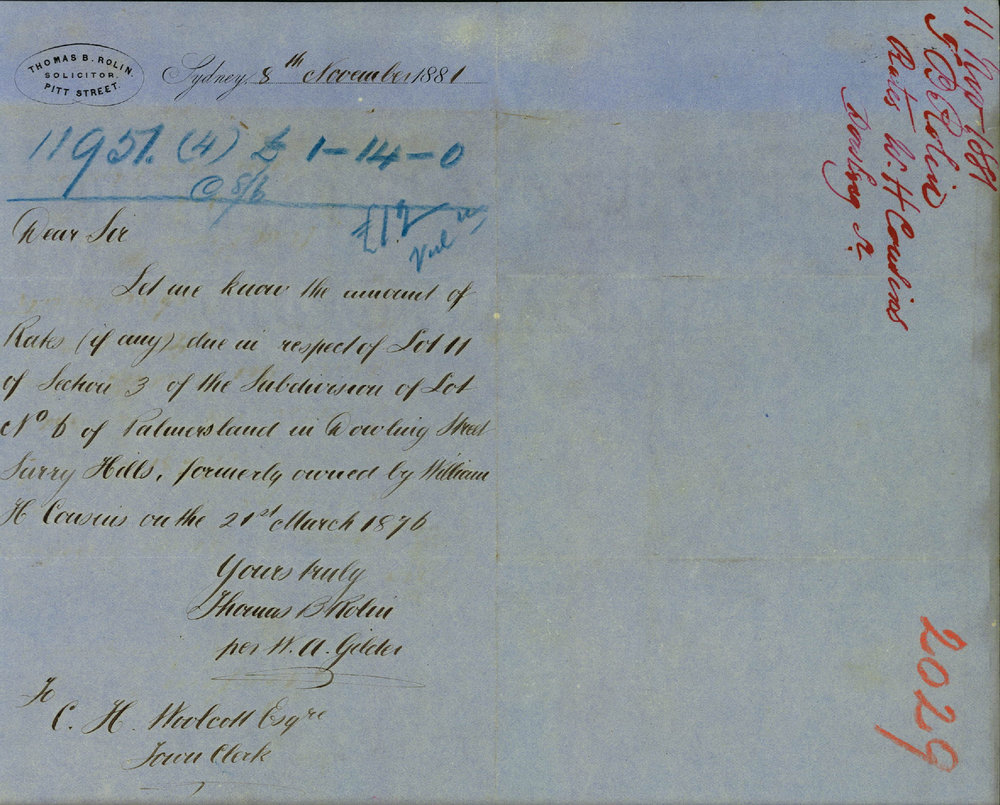 THOMAS B. ROLIN.
SOLICITOR.
PITT STREET.
Sydney, 8th November 1881
11951. (4) £ 1-14-0
@ 8/6
£12
Dear Sir
Let me know the amount of
Rates (if any) due in respect of Lot 11
of Section 3 of the Subdivision of Lot
No 6 of Palmersland in Dowling Street
Surry Hills, formerly owned by William
H Cousins on the 21st March 1876
Yours truly
Thomas B Rolin
per W. A. Gilder
To
C. H. Woolcott Esqre
Town Clerk
11 Nov 1881
T B Rolin
Rates W. H Cousins
Dowling St
2029